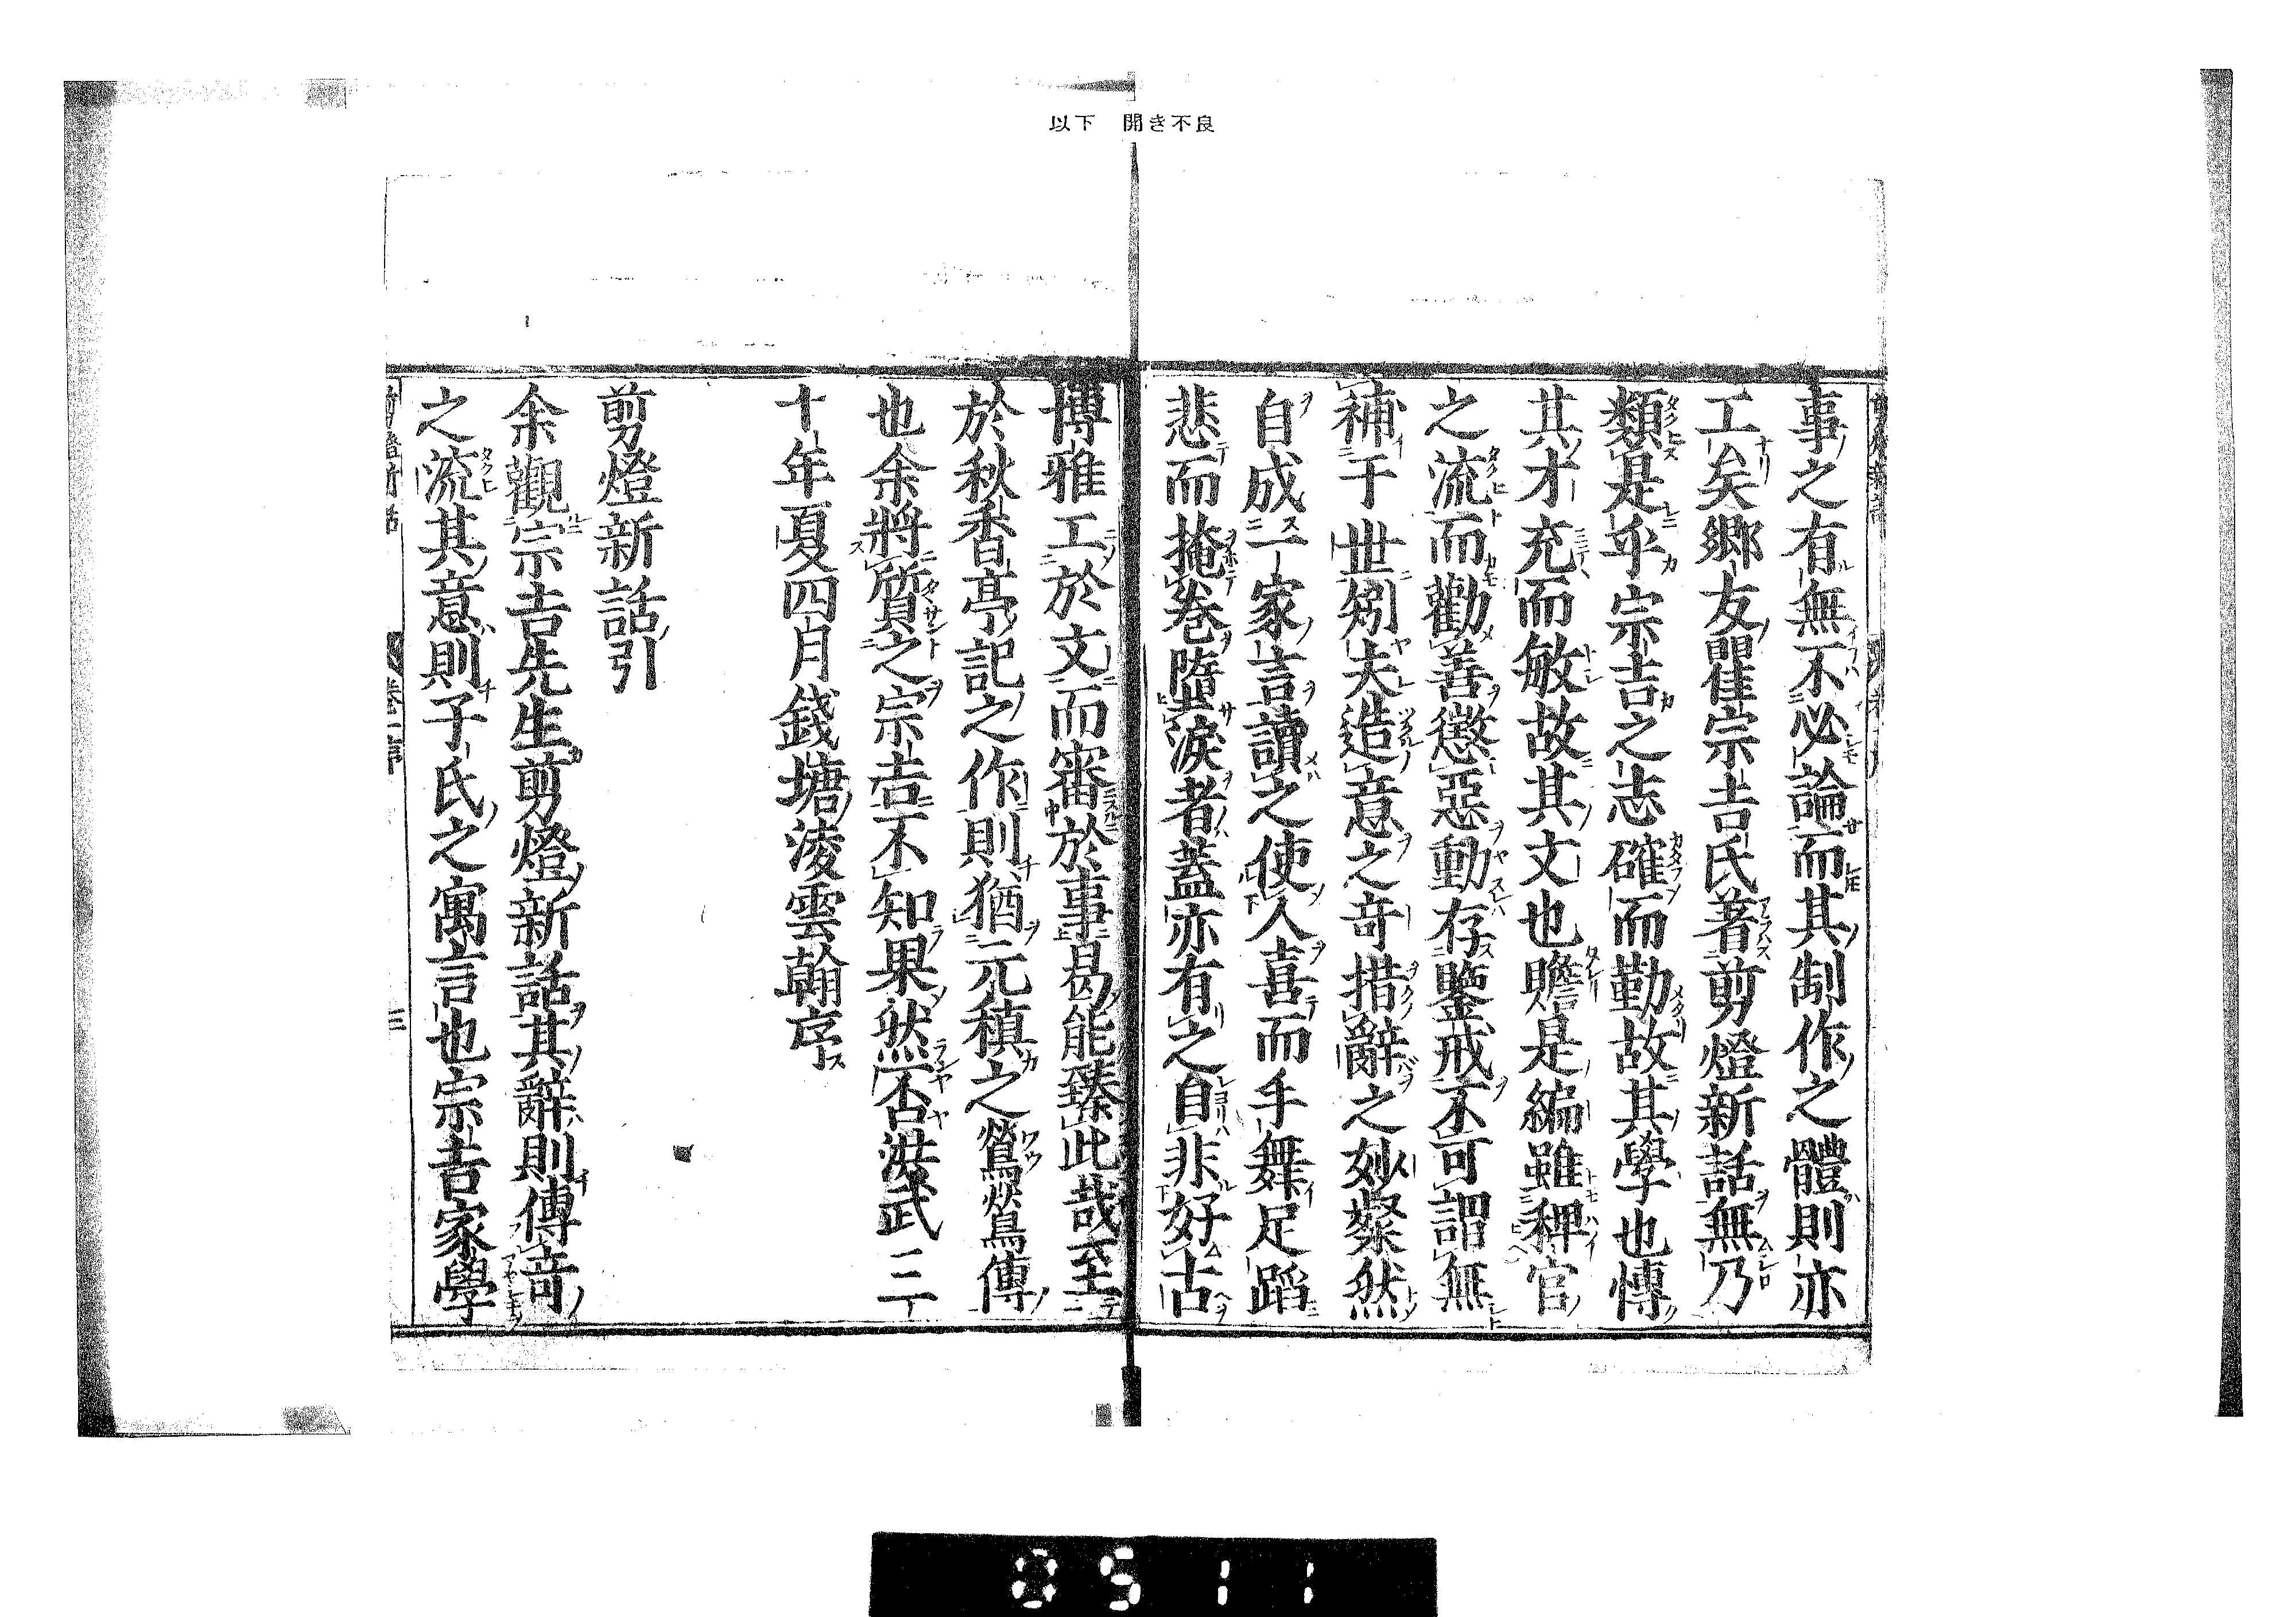 以下 開き不良
事之有無不必論而其制作之體則亦
工矣鄉友瞿宗吉氏著剪燈新話無乃
類是乎宗吉之志確而勤故其學也慱
其才充而敏故其文也贍是編雖稗官
之流而勸善懲惡動存鑒戒不可謂無
補于世矧夫造意之奇措辭之妙粲然
自成一家言讀之使人喜而手舞足蹈
悲而掩卷墮淚者蓋亦有之自非好古
博雅工於文而審於事曷能臻此哉至
於秋香亭記之作則猶元稹之鶯鶯傳
也余將質之宗吉不知果然否洪武三
十年夏四月錢塘淩雲翰序
剪燈新話引
余觀宗吉先生剪燈新話其辭則傳奇
之流其意則子氏之寓言也宗吉家學
剪燈新話 卷一序 三
0511